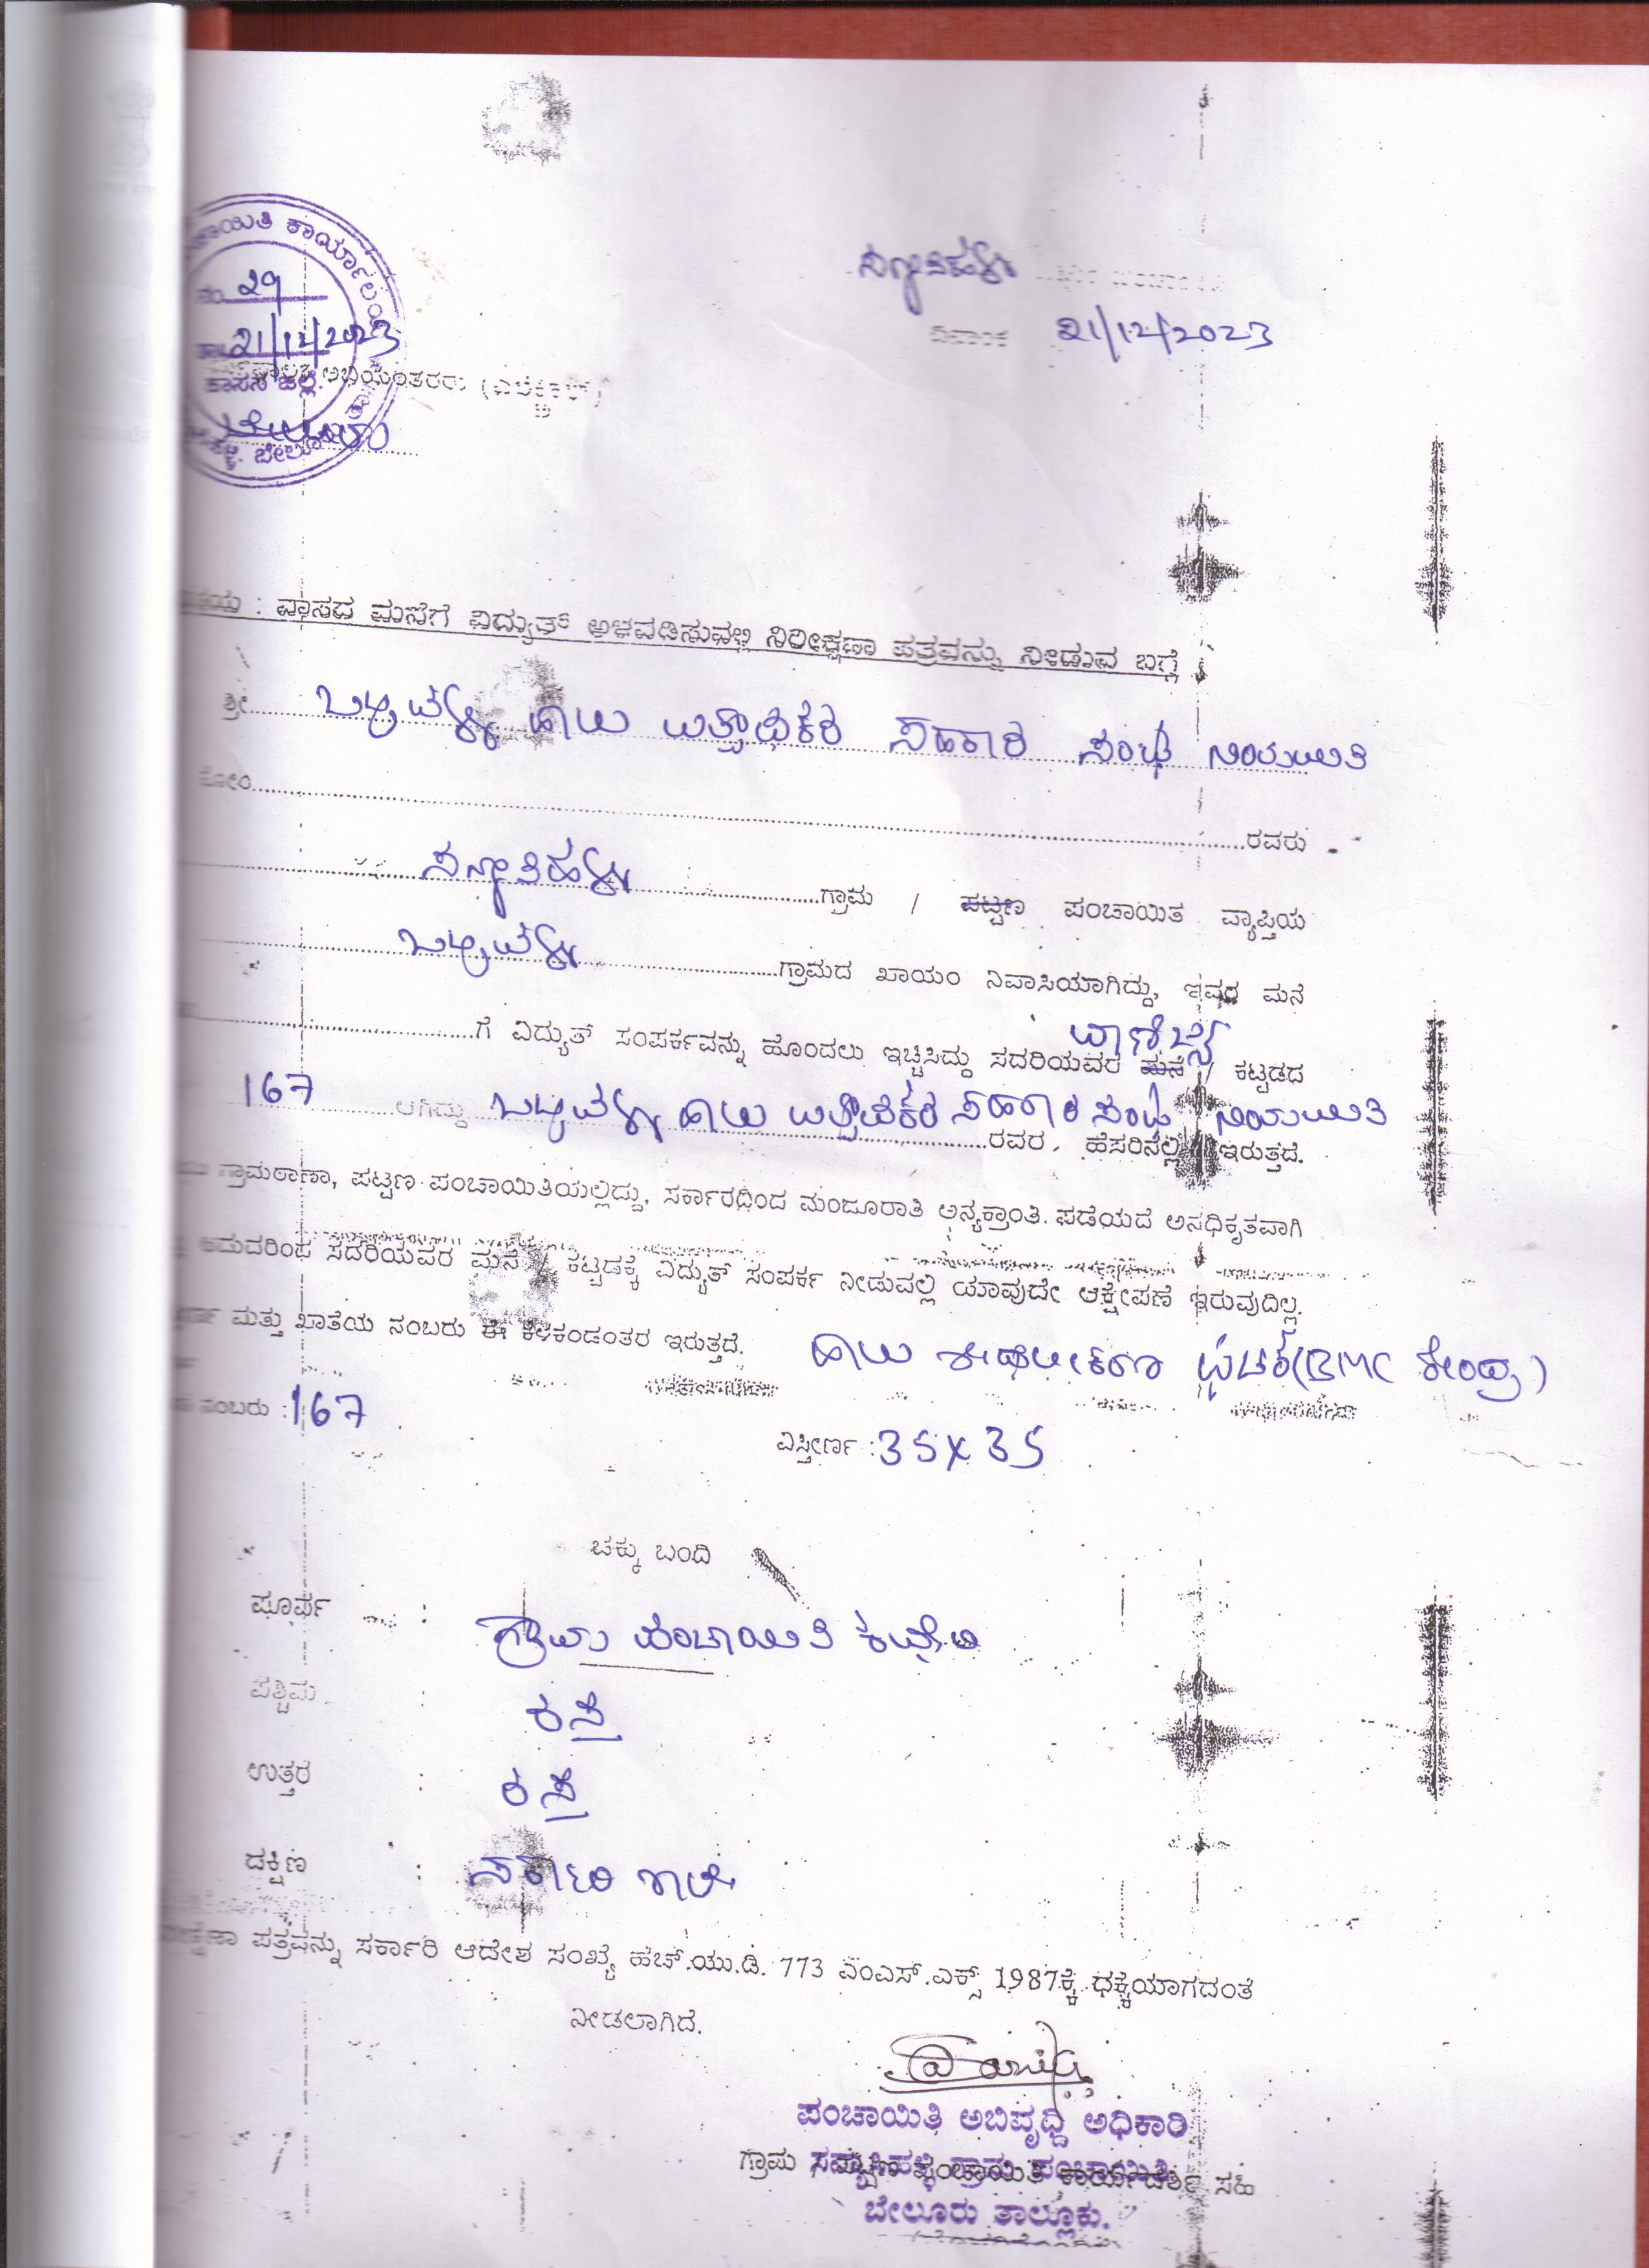 ಕಾರ್ಯಾಲಯ
ನಂ. 29
ಸನ್ಯಾಸಿಹಳ್ಳಿ
21/12/2023
ದಿನಾಂಕ 21/12/2023
ಹಾಸನ ಜಿಲ್ಲೆ.
ಅಭಿಯಂತರರು (ಎಲೆಕ್ಟ್ರಿಕಲ್)
ಬೇಲೂರು
: ವಾಸದ ಮನೆಗೆ ವಿದ್ಯುತ್ ಅಳವಡಿಸುವಲ್ಲಿ ನಿರೀಕ್ಷಣಾ ಪತ್ರವನ್ನು ನೀಡುವ ಬಗ್ಗೆ
ಶ್ರೀ ಹಾಲು ಉತ್ಪಾಧಕರ ಸಹಕಾರ ಸಂಘ ನಿಯಮಿತ
ಕೋಂ ರವರು
ಗ್ರಾಮ / ಪಟ್ಟಣ ಪಂಚಾಯಿತ ವ್ಯಾಪ್ತಿಯ
ಗ್ರಾಮದ ಖಾಯಂ ನಿವಾಸಿಯಾಗಿದ್ದು, ಇವರ ಮನೆ
ವಾಣಿಜ್ಯ
ಗೆ ವಿದ್ಯುತ್ ಸಂಪರ್ಕವನ್ನು ಹೊಂದಲು ಇಚ್ಚಿಸಿದ್ದು ಸದರಿಯವರ ಮನೆ / ಕಟ್ಟಡದ
167 ಆಗಿದ್ದು ಹಾಲು ಉತ್ಪಾಧಕರ ಸಹಕಾರ ಸಂಘ ನಿಯಮಿತ
ರವರ ಹೆಸರಿನಲ್ಲಿ ಇರುತ್ತದೆ.
ಗ್ರಾಮಠಾಣಾ, ಪಟ್ಟಣ ಪಂಚಾಯಿತಿಯಲ್ಲಿದ್ದು, ಸರ್ಕಾರದಿಂದ ಮಂಜೂರಾತಿ ಅನ್ಯಕ್ರಾಂತಿ ಪಡೆಯದೆ ಅನಧಿಕೃತವಾಗಿ
ಸದರಿಯವರ ಮನೆ / ಕಟ್ಟಡಕ್ಕೆ ವಿದ್ಯುತ್ ಸಂಪರ್ಕ ನೀಡುವಲ್ಲಿ ಯಾವುದೇ ಆಕ್ಷೇಪಣೆ ಇರುವುದಿಲ್ಲ.
ಮತ್ತು ಖಾತೆಯ ನಂಬರು ಈ ಕೆಳಕಂಡಂತರ ಇರುತ್ತದೆ.
ಹಾಲು ಶೀಥಲೀಕರಣ ಘಟಕ (BMC ಕೇಂದ್ರ)
ನಂಬರು : 167
ವಿಸ್ತೀರ್ಣ : 35 x 35
ಚಕ್ಕು ಬಂದಿ
ಪೂರ್ವ : ಗ್ರಾಮ ಪಂಚಾಯಿತಿ ಕಛೇರಿ
ಪಶ್ಚಿಮ : ರಸ್ತೆ
ಉತ್ತರ : ರಸ್ತೆ
ದಕ್ಷಿಣ : ಸರ್ಕಾರಿ ಶಾಲೆ
ಪತ್ರವನ್ನು ಸರ್ಕಾರಿ ಆದೇಶ ಸಂಖ್ಯೆ ಹೆಚ್.ಯು.ಡಿ. 773 ಎಂಎಸ್.ಎಕ್ಸ್ 1987ಕ್ಕೆ ಧಕ್ಕೆಯಾಗದಂತೆ
ನೀಡಲಾಗಿದೆ.
ಪಂಚಾಯಿತಿ ಅಬಿವೃಧ್ದಿ ಅಧಿಕಾರಿ
ಗ್ರಾಮ / ಪಟ್ಟಣ ಪಂಚಾಯಿತಿ ಕಾರ್ಯದರ್ಶಿ ಸಹಿ
ಬೇಲೂರು ತಾಲ್ಲೂಕು.